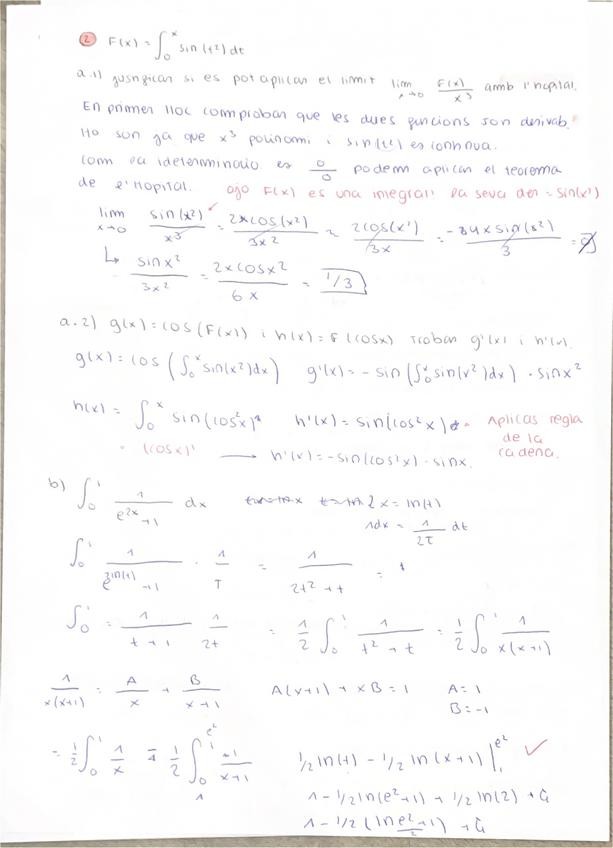 ② F(x) = ∫₀ˣ sin(t²) dt
a.1) Justificar si es pot aplicar el limit lim x→0 F(x)/x³ amb l'hopital.
En primer lloc comproban que les dues funcions son derivab.
Ho son ja que x³ polinomi i sin(t²) es continua.
Com la ideterminacio es 0/0 podem aplicar el teorema
de l'Hopital. ojo F(x) es una integral! la seva der = sin(x²)
lim x→0 sin(x²)/x³ = 2xcos(x²)/3x² = 2cos(x²)/3x = -4xsin(x²)/3 = 0
↳ sinx²/3x² = 2xcosx²/6x = 1/3
a.2) g(x) = cos(F(x)) i h(x) = F(cosx) Troban g'(x) i h'(x).
g(x) = cos(∫₀ˣ sin(x²)dx) g'(x) = -sin(∫₀ˣ sin(x²)dx) · sinx²
h(x) = ∫₀ˣ sin(cos²x) h'(x) = sin(cos²x) · Aplicas regla
de la
· (cosx)' → h'(x) = -sin(cos²x) · sinx. cadena.
b) ∫₀¹ 1/(e²ˣ+1) dx 2x = ln(t)
1dx = 1/2t dt
∫₀¹ 1/(e^(ln(t))+1) · 1/t = 1/(2t²+t) =
∫₀¹ = 1/(t+1) 1/2t = 1/2 ∫₀¹ 1/(t²+t) = 1/2 ∫₀¹ 1/(x(x+1))
1/(x(x+1)) = A/x + B/(x+1) A(x+1) + xB = 1 A = 1
B = -1
= 1/2 ∫₀¹ 1/x + 1/2 ∫₁^(e²) -1/(x+1) 1/2 ln(t) - 1/2 ln(x+1) |₁^(e²) ✓
1 - 1/2 ln(e²+1) + 1/2 ln(2) + C
1 - 1/2 (ln (e²+1)/2) + C